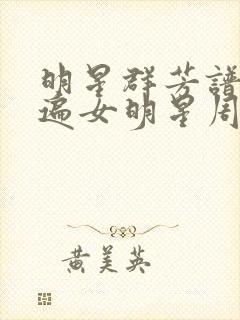 明星群芳譜
遍女明星周
黄美英